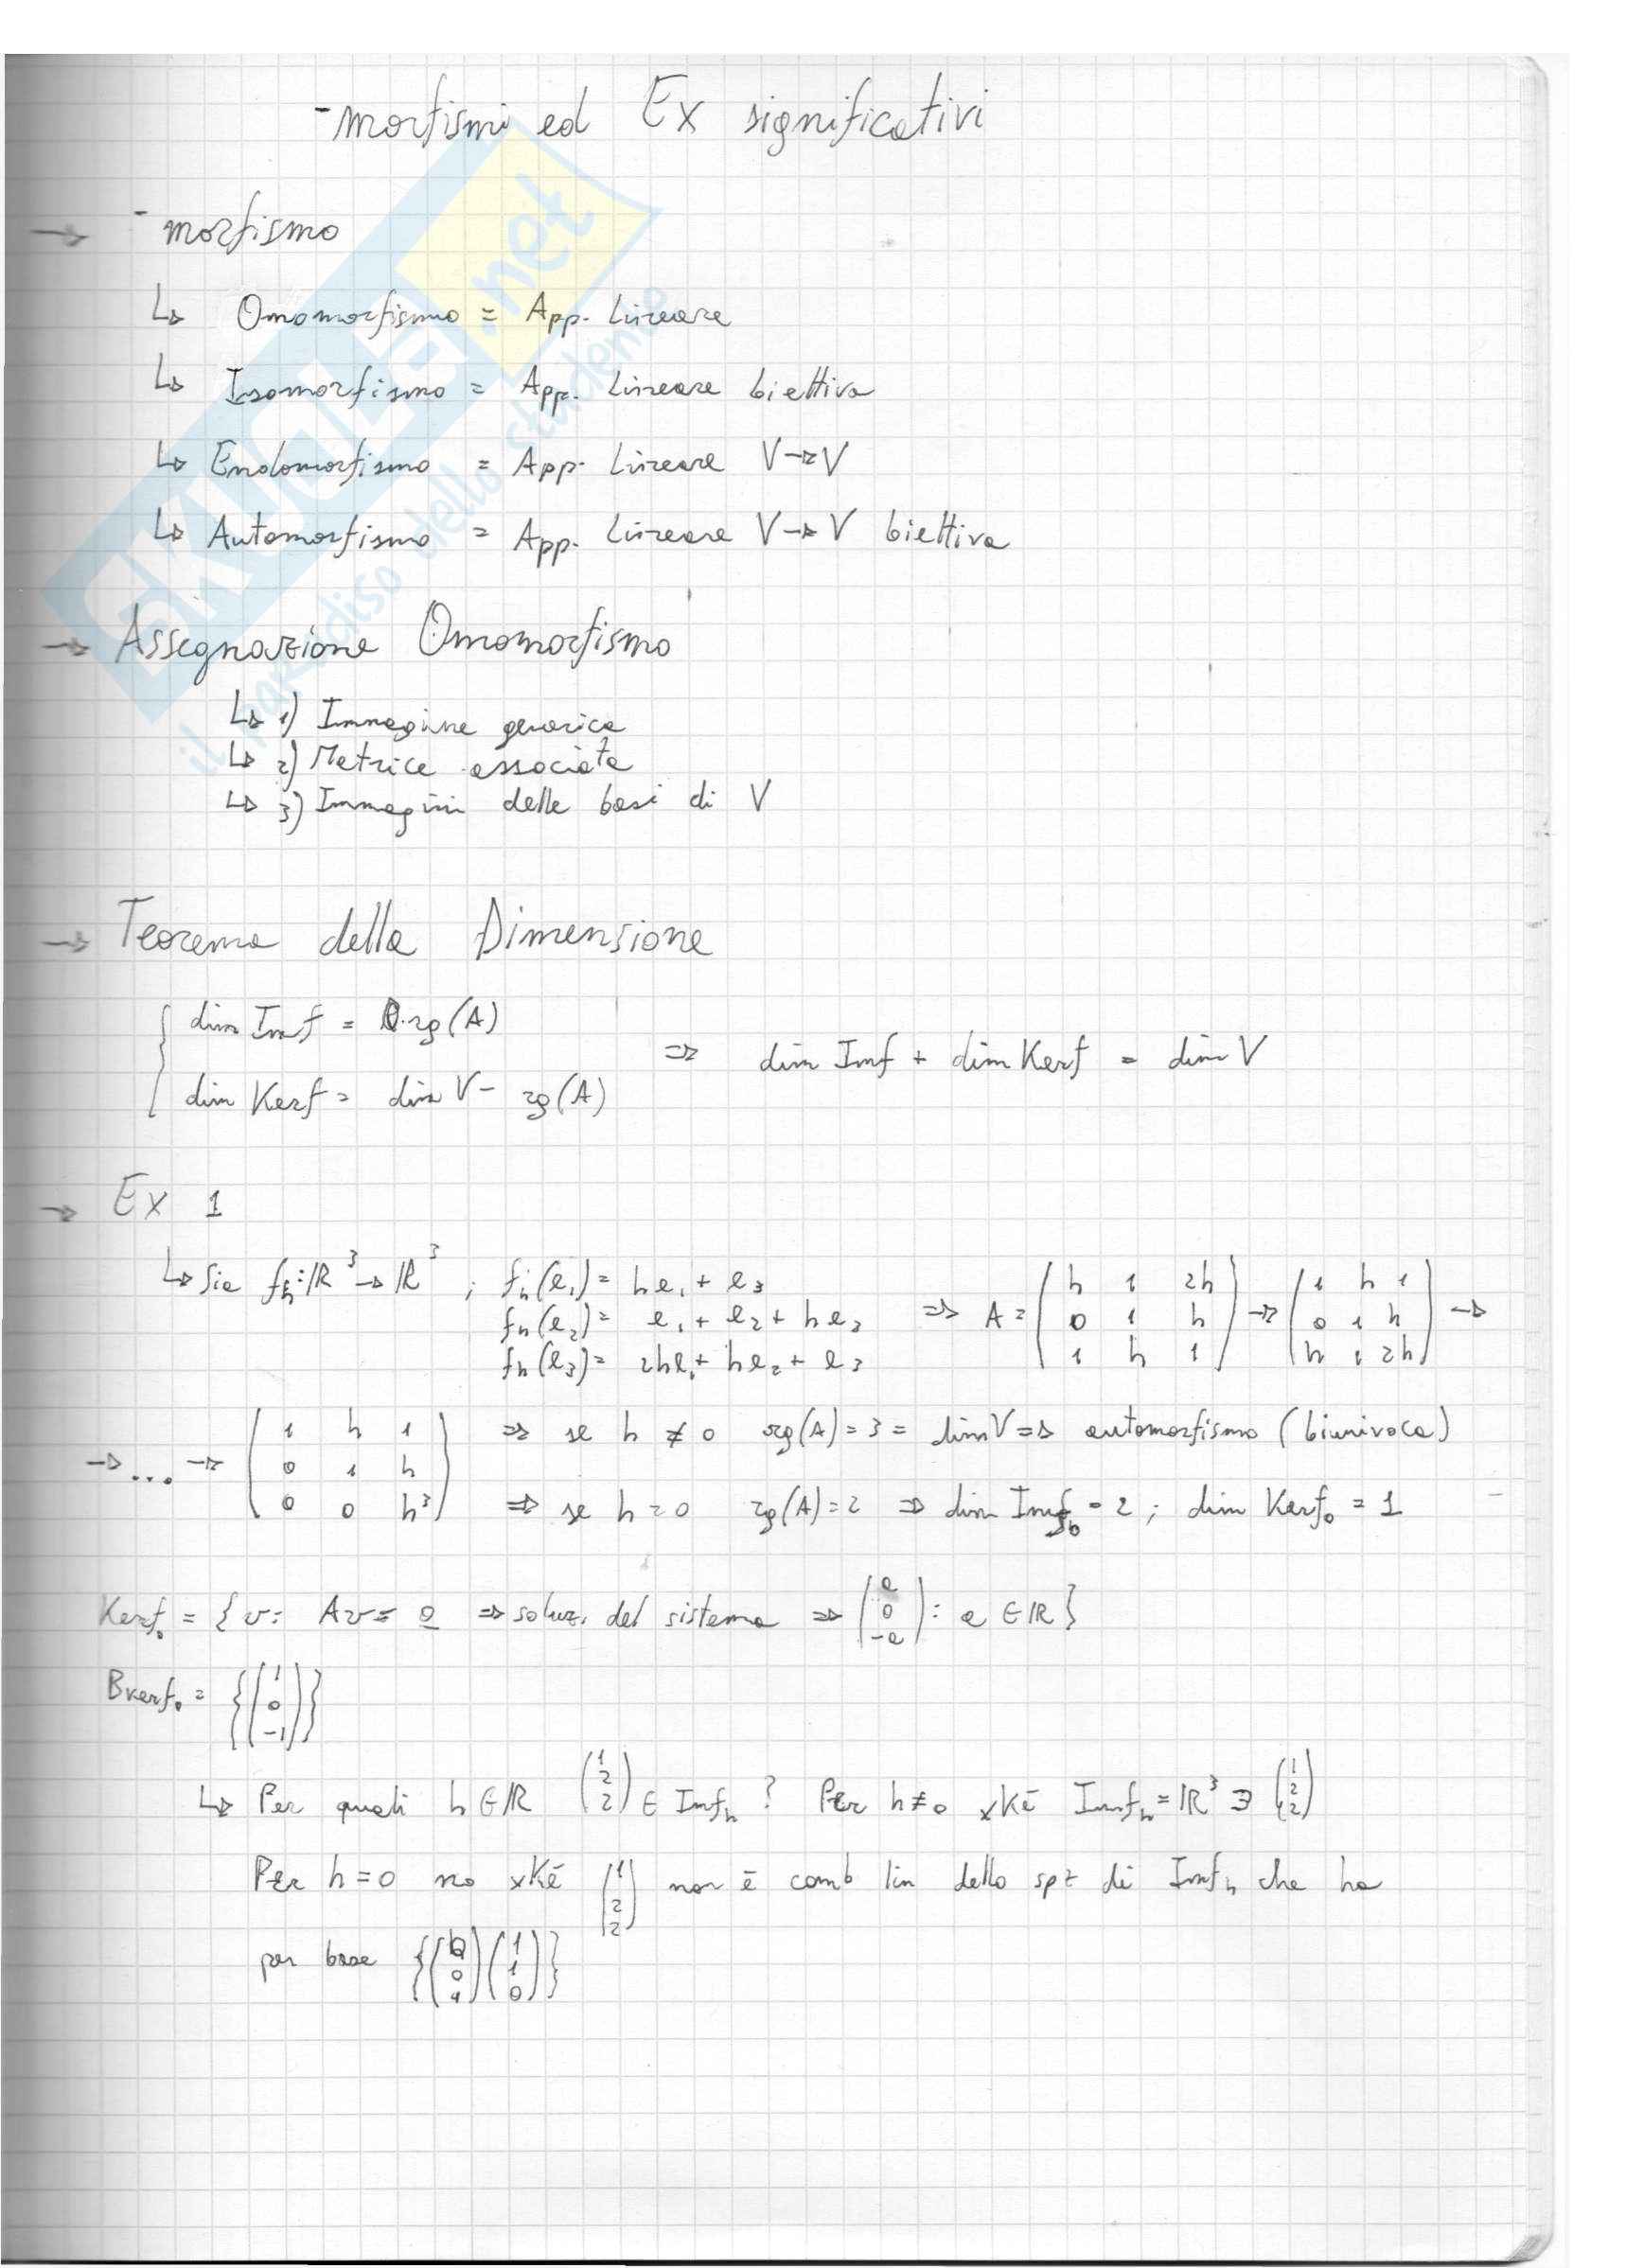 -morfismi ed Ex significativi
→ -morfismo
↳ Omomorfismo = App. Lineare
↳ Isomorfismo = App. Lineare biettiva
↳ Endomorfismo = App. Lineare V→V
↳ Automorfismo = App. Lineare V→V biettiva
→ Assegnazione Omomorfismo
↳ 1) Immagine generica
↳ 2) Matrice associata
↳ 3) Immagini delle basi di V
→ Teorema della Dimensione
{ dim Imf = rg(A)
dim Kerf = dim V - rg(A) ⇒ dim Imf + dim Kerf = dim V
→ Ex 1
↳ Sia f_h: ℝ³ → ℝ³ ; f_h(e₁) = he₁ + e₃
f_h(e₂) = e₁ + e₂ + he₃ ⇒ A = (h 1 2h / 0 1 h / 1 h 1) → (1 h 1 / 0 1 h / h 1 2h) →
f_h(e₃) = 2he₁ + he₂ + e₃
→ ... → (1 h 1 / 0 1 h / 0 0 h³) ⇒ se h ≠ 0 rg(A) = 3 = dim V ⇒ automorfismo (biunivoca)
⇒ se h = 0 rg(A) = 2 ⇒ dim Imf₀ = 2 ; dim Kerf₀ = 1
Kerf₀ = { v : Av = 0 ⇒ soluz. del sistema ⇒ (a / 0 / -a) : a ∈ ℝ }
BKerf₀ = {(1 / 0 / -1)}
↳ Per quali h ∈ ℝ (1 / 2 / 2) ∈ Imf_h ? Per h ≠ 0 xké Imf_h = ℝ³ ∋ (1 / 2 / 2)
Per h = 0 no xké (1 / 2 / 2) non è comb lin dello spz di Imf_h che ha
per base {(0 / 0 / 1) (1 / 1 / 0)}
SKUOLA.net
il paradiso dello studente